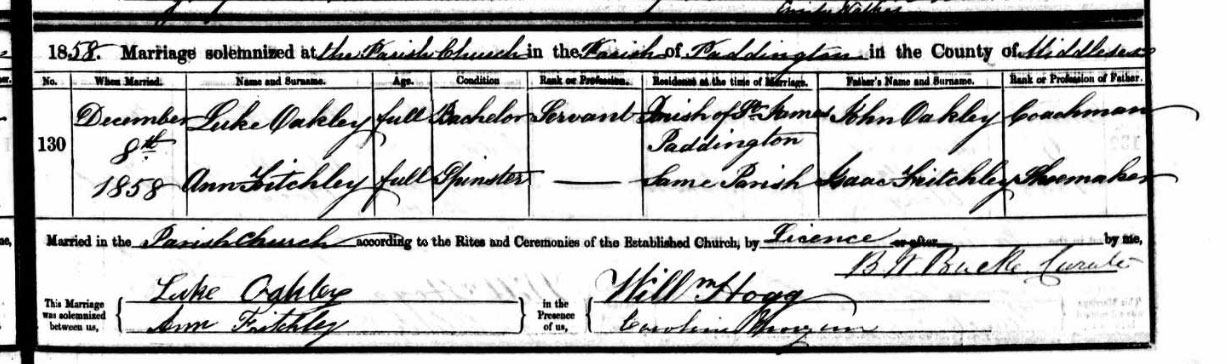 1858. Marriage solemnized at the Parish Church in the Parish of Paddington in the County of Middlesex
No. When Married. Name and Surname. Age. Condition Rank or Profession. Residence at the time of Marriage. Father's Name and Surname. Rank or Profession of Father.
130 December 8th 1858 Luke Oakley full Bachelor Servant Parish of St. James Paddington John Oakley Coachman
Ann Fritchley full Spinster — Same Parish Isaac Fritchley Shoemaker
Married in the Parish Church according to the Rites and Ceremonies of the Established Church, by Licence or after by me,
B W Bucke Curate
This Marriage was solemnized between us, Luke Oakley in the Presence of us, Willm Hogg
Ann Fritchley Caroline